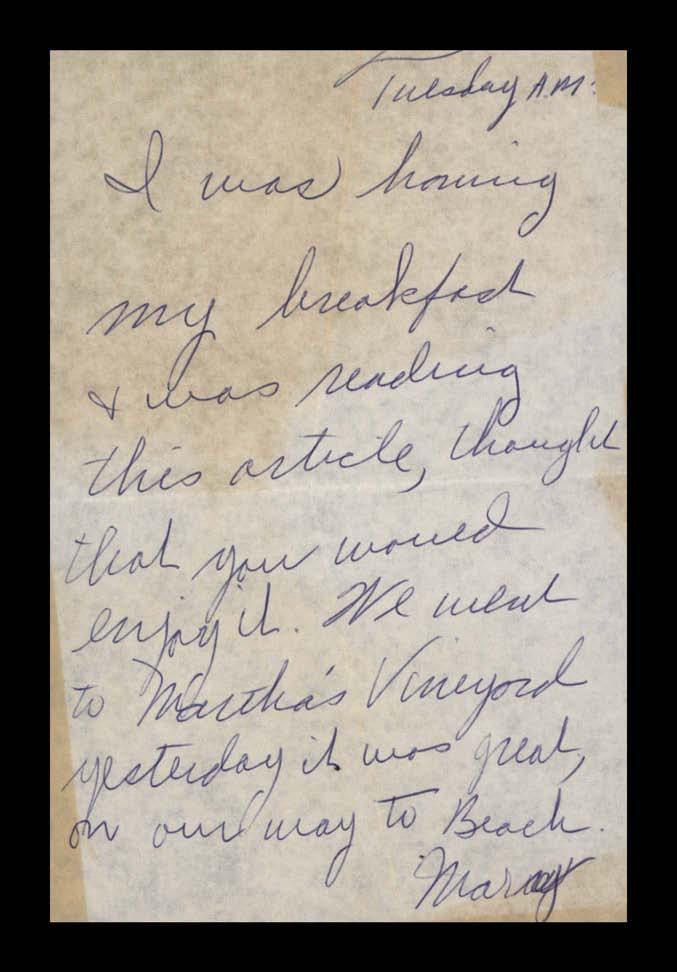 Tuesday A.M.
I was having
my breakfast
& was reading
this article, thought
that you would
enjoy it. We went
to Martha's Vineyard
yesterday it was great,
on our way to Beach.